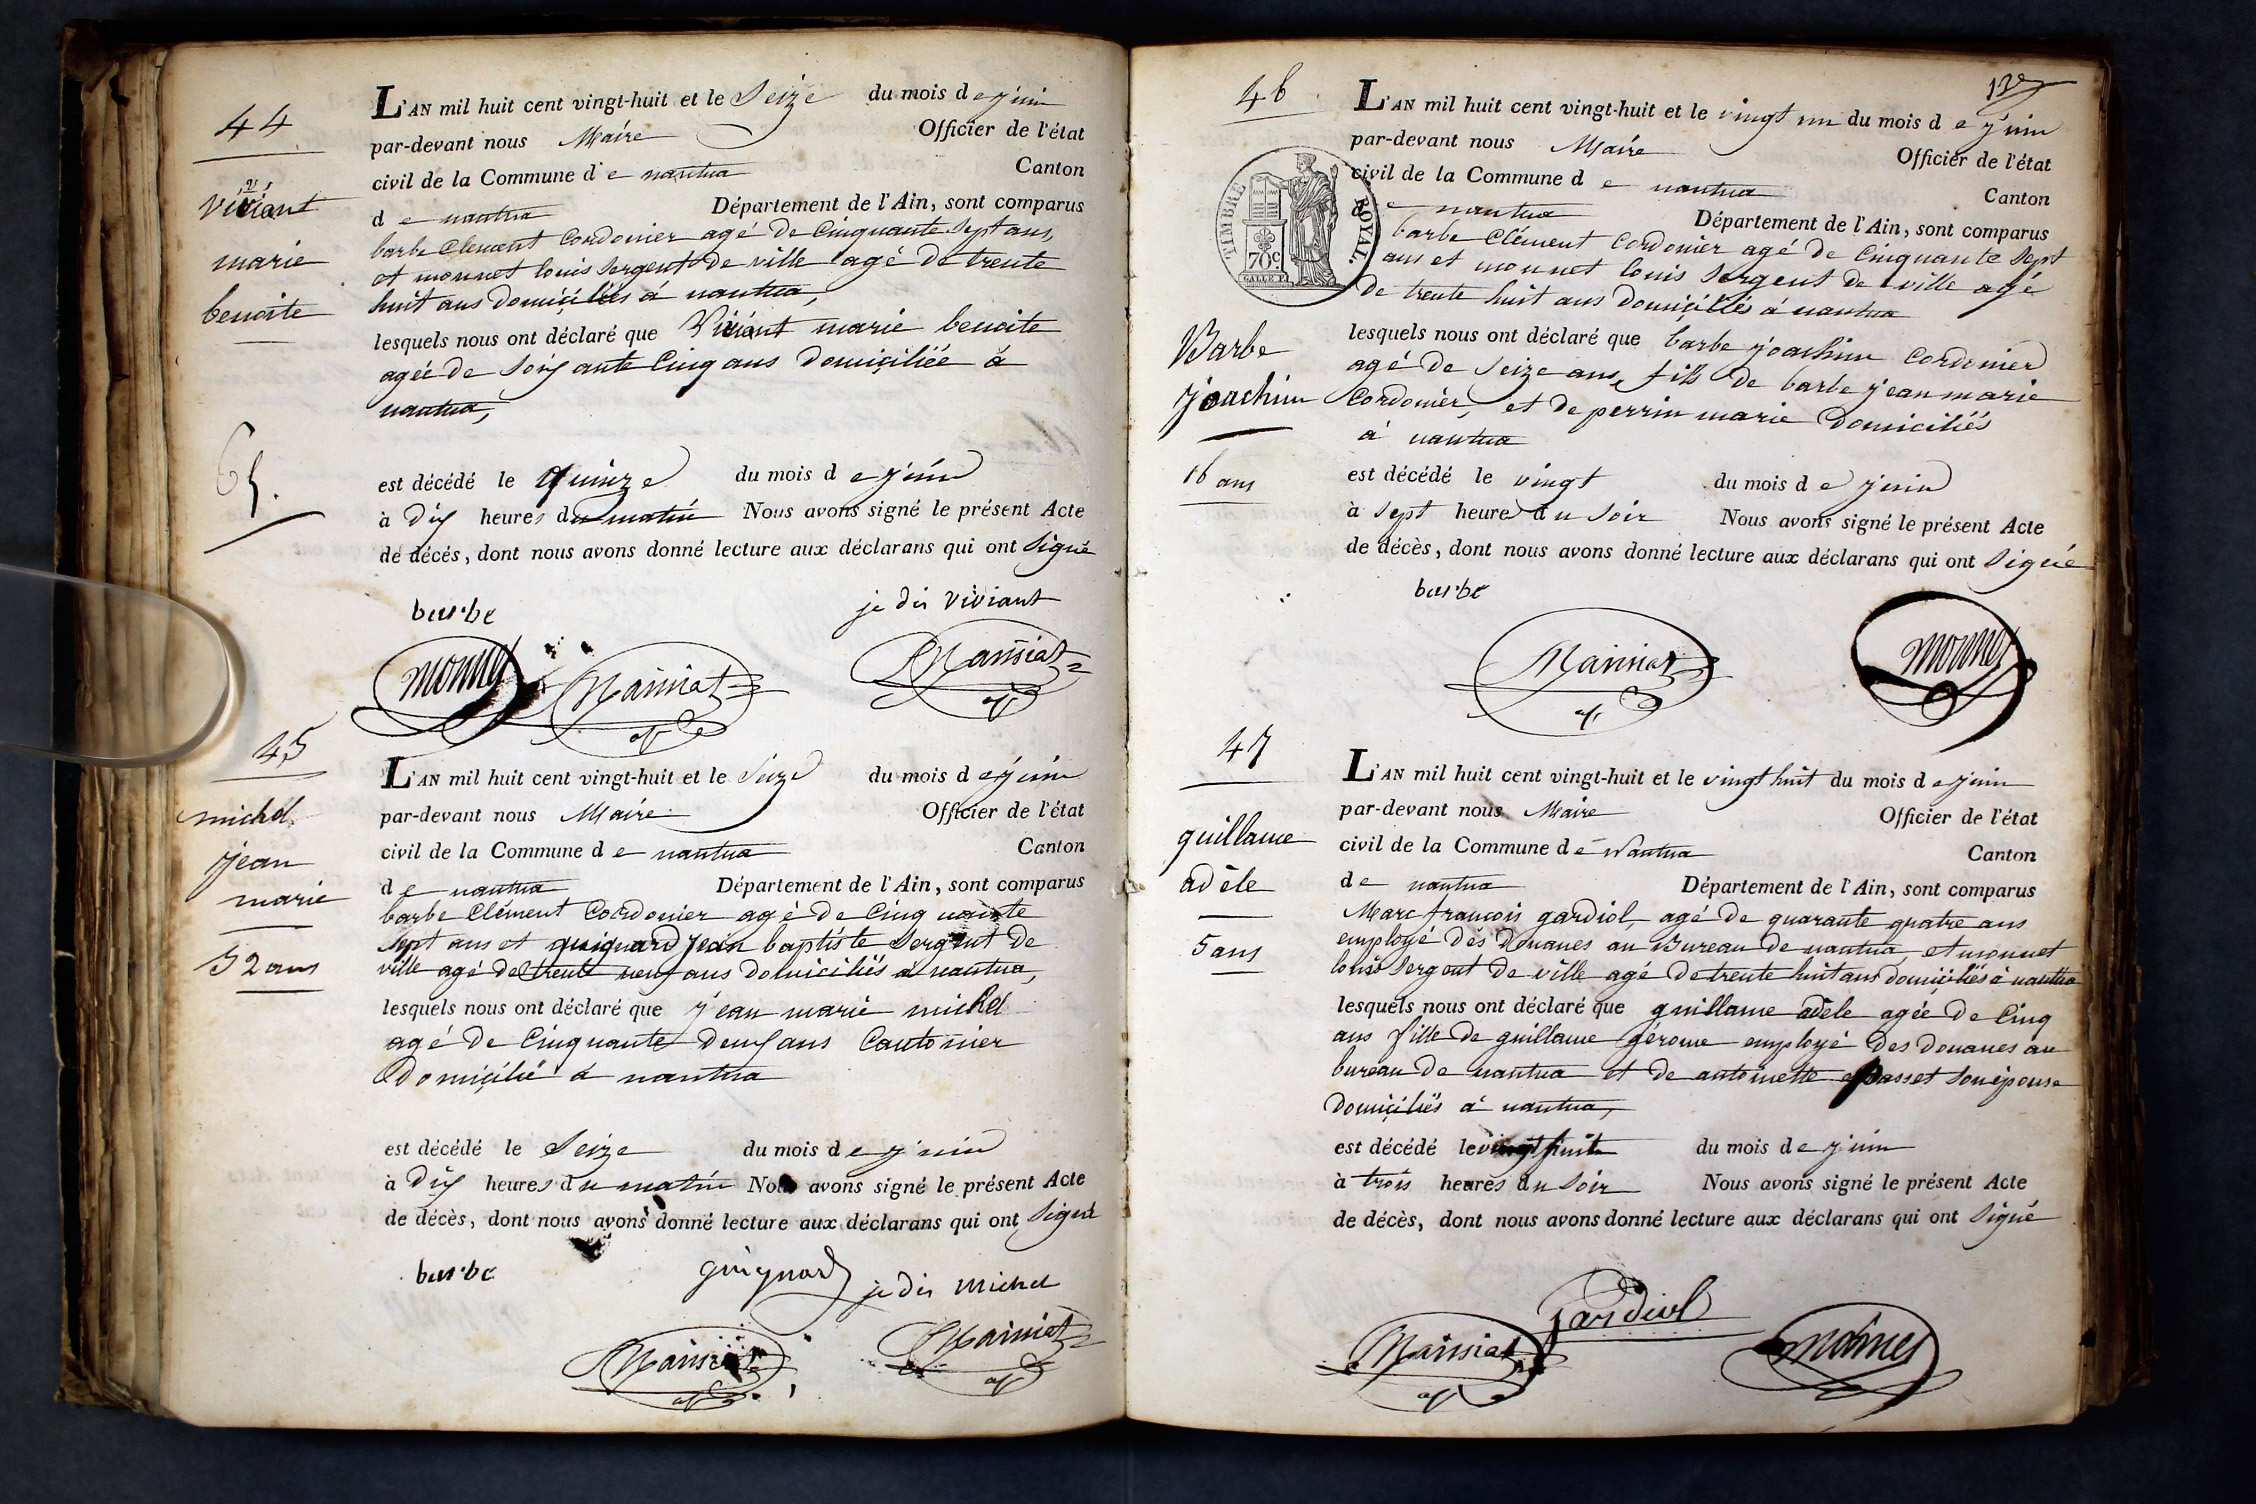 44
viviant
marie
benoite
65.
L'AN mil huit cent vingt-huit et le Seize du mois de juin
par-devant nous Maire Officier de l'état
civil de la Commune de nantua Canton
de nantua Département de l'Ain, sont comparus
barbe Clement Cordonier agé de Cinquante Sept ans,
et monnet louis Sergent de ville agé de trente
huit ans domiciliés à nantua,
lesquels nous ont déclaré que Viviant marie benoite
agée de Soixante Cinq ans domiciliée à
nantua,
est décédé le quinze du mois de juin
à Dix heures du matin Nous avons signé le présent Acte
de décés, dont nous avons donné lecture aux déclarans qui ont Signé
barbe je dis viviant
monnet Mainiat Mainiat
45
michel
jean
marie
52 ans
L'AN mil huit cent vingt-huit et le Seize du mois de juin
par-devant nous Maire Officier de l'état
civil de la Commune de nantua Canton
de nantua Département de l'Ain, sont comparus
barbe Clément Cordonier agé de Cinquante
Sept ans et guignard jean baptiste Sergent de
ville agé de trente neuf ans domiciliés à nantua,
lesquels nous ont déclaré que jean marie michel
agé de Cinquante Deux ans Cantonier
domicilié à nantua
est décédé le Seize du mois de juin
à Dix heures du matin Nous avons signé le présent Acte
de décès, dont nous avons donné lecture aux déclarans qui ont Signé
barbe guignard je dis michel
Mainiat Mainiat
46
TIMBRE ROYAL.
70c
Barbe
joachim
16 ans
L'AN mil huit cent vingt-huit et le vingt un du mois de juin
par-devant nous Maire Officier de l'état
civil de la Commune de nantua Canton
de nantua Département de l'Ain, sont comparus
barbe Clément Cordonier agé de Cinquante Sept
ans et monnet louis Sergent de ville agé
de trente huit ans domiciliés à nantua
lesquels nous ont déclaré que barbe joachim Cordonier
agé de Seize ans, fils de barbe jean marie
Cordonier, et de perrin marie domiciliés
à nantua
est décédé le vingt du mois de juin
à Sept heures du Soir Nous avons signé le présent Acte
de décès, dont nous avons donné lecture aux déclarans qui ont Signé
barbe
Mainiat monnet
47
guillaume
adèle
5 ans
L'AN mil huit cent vingt-huit et le vingt huit du mois de juin
par-devant nous Maire Officier de l'état
civil de la Commune de Nantua Canton
de nantua Département de l'Ain, sont comparus
Marc françois gardiol, agé de quarante quatre ans
employé des Douanes au Bureau de nantua, et monnet
louis Sergent de ville agé de trente huit ans domiciliés à nantua
lesquels nous ont déclaré que guillaume adèle agée de Cinq
ans fille de guillaume jérome employé des Douanes au
bureau de nantua et de antoinette passet son épouse
Domiciliés à nantua,
est décédé le vingt huit du mois de juin
à trois heures du Soir Nous avons signé le présent Acte
de décès, dont nous avons donné lecture aux déclarans qui ont Signé
gardiol
Mainiat monnet